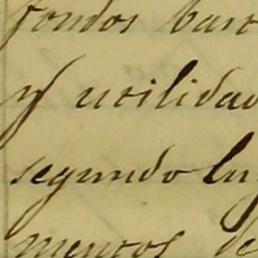 fondos bas
y utilidad
segundo lug
mentos de